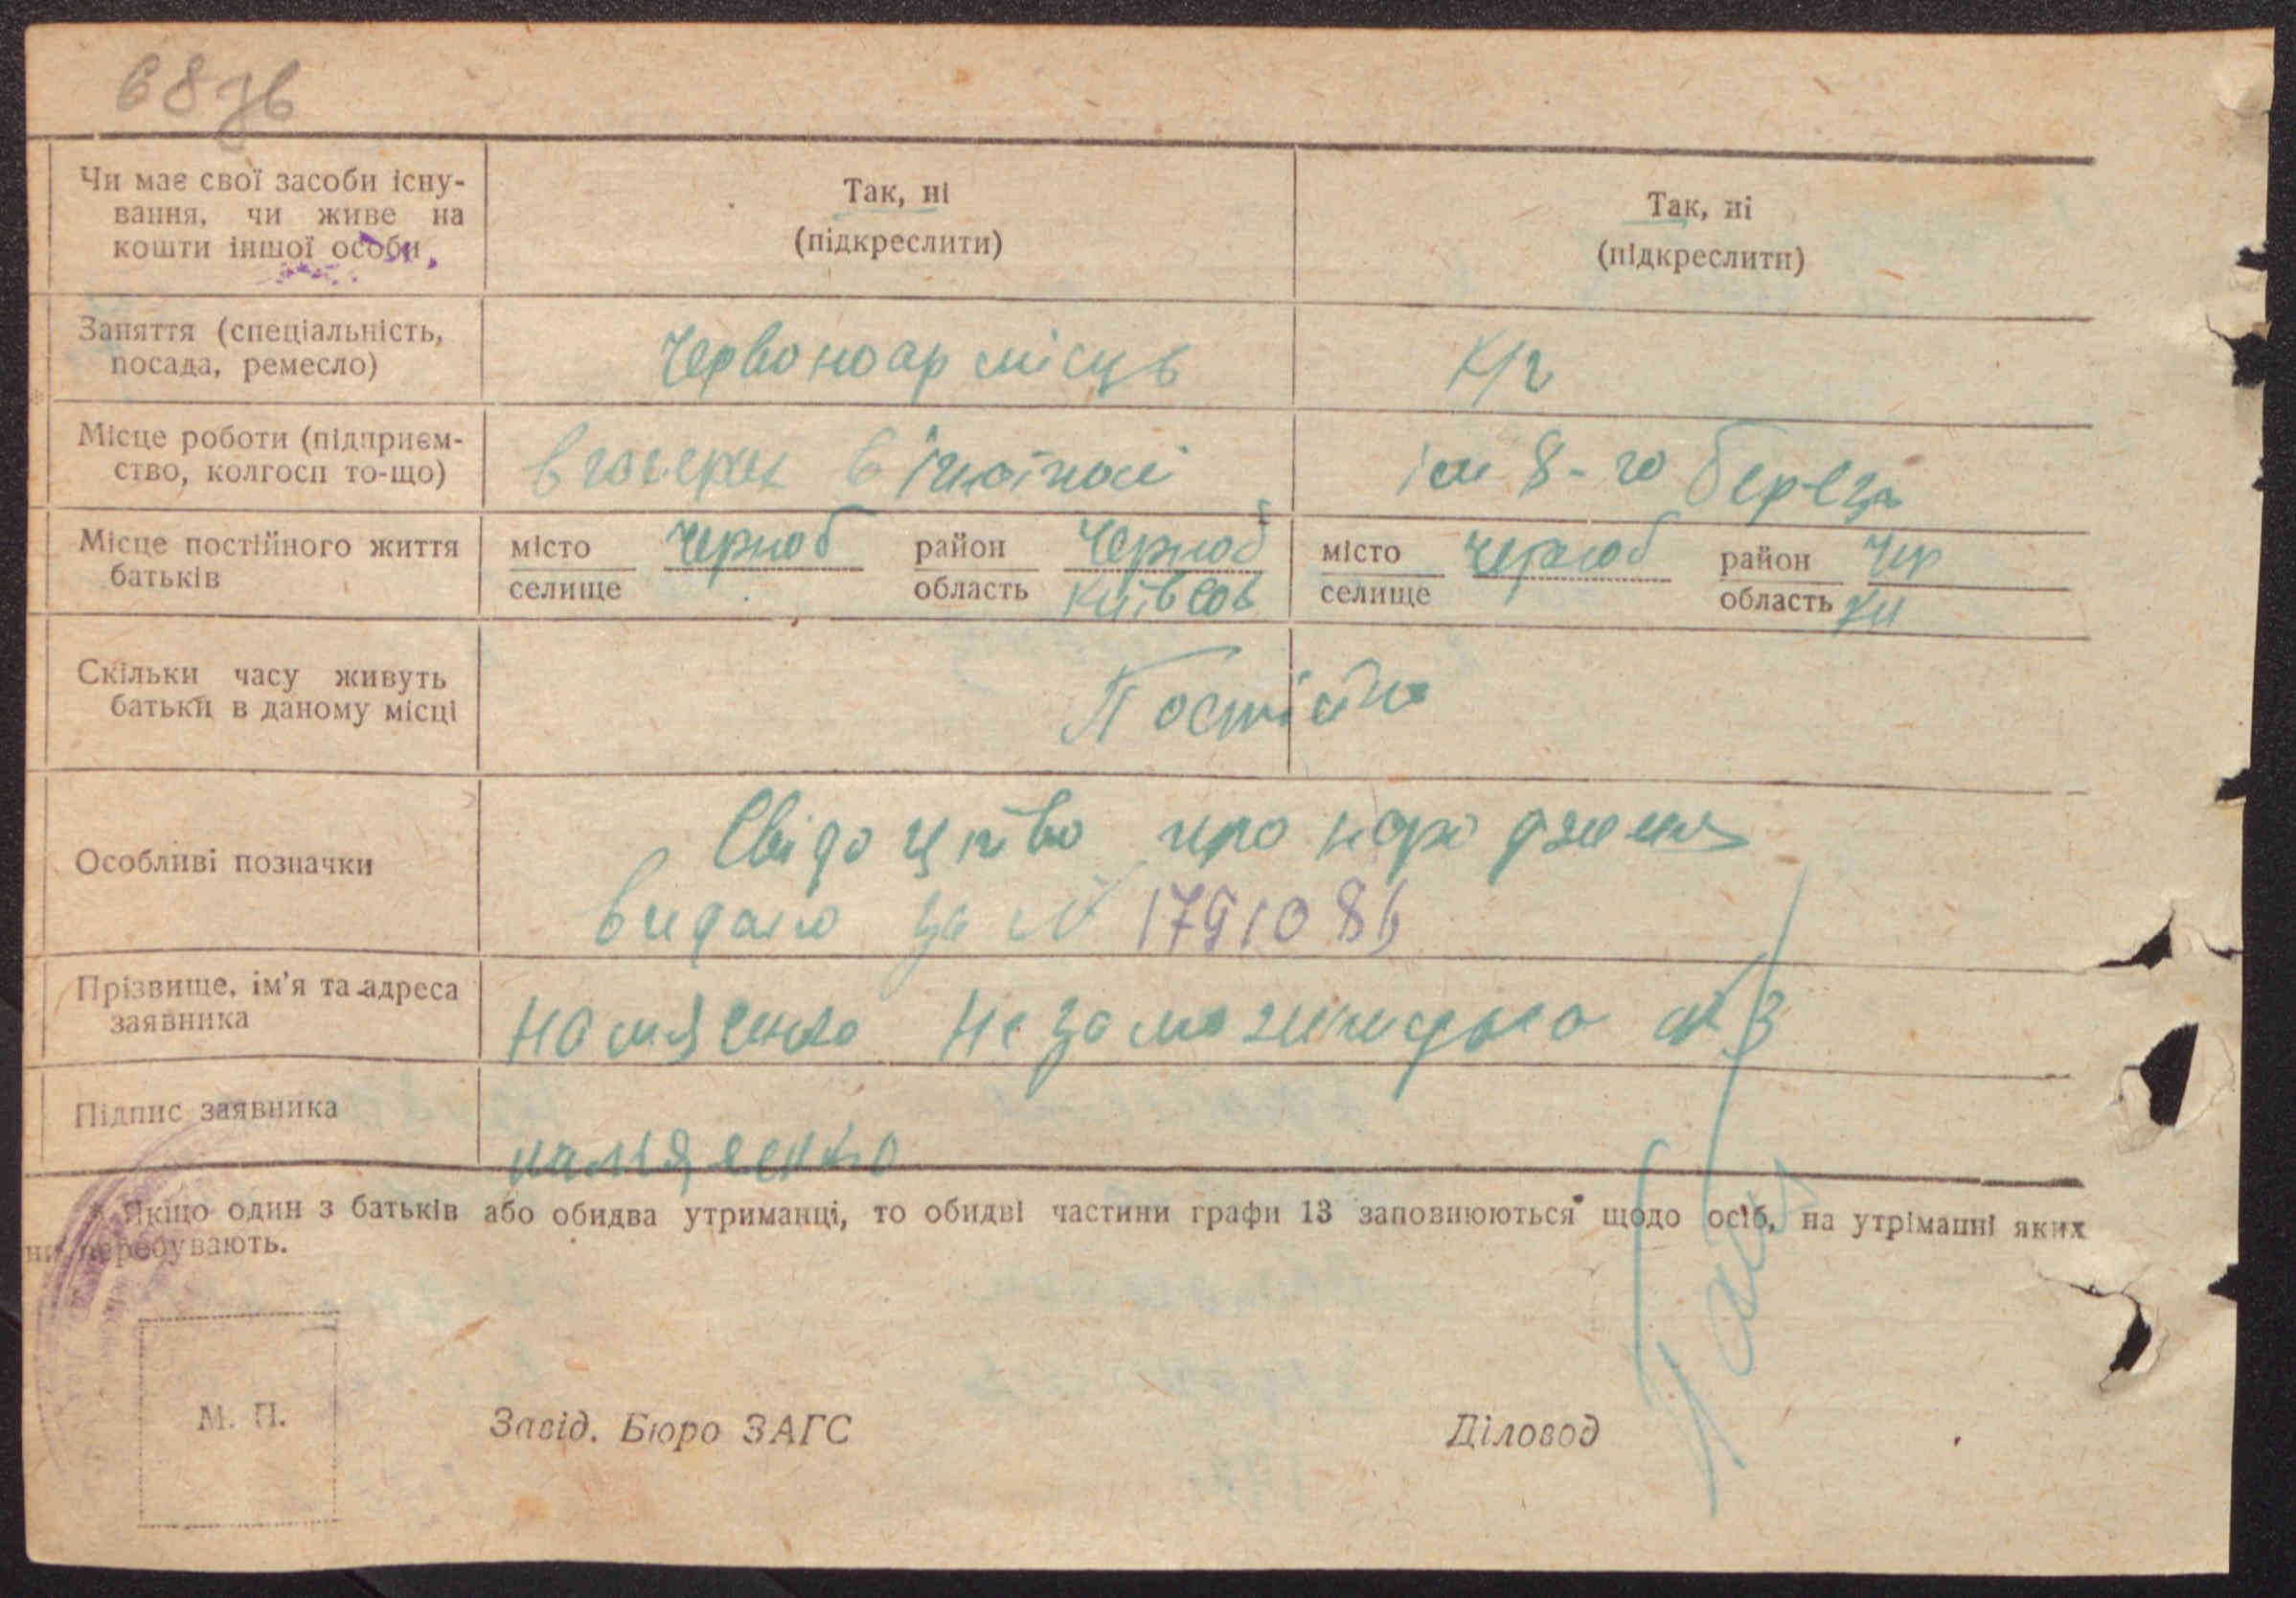 68 зв
Чи має свої засоби існу-
вання, чи живе на
кошти іншої особи
Так, ні
(підкреслити)
Так, ні
(підкреслити)
Заняття (спеціальність,
посада, ремесло)
Червоноармієць
к/г
Місце роботи (підприєм-
ство, колгосп то-що)
в
ім 8-го березня
Місце постійного життя
батьків
місто
селище
Чорноб
район
область
Чорноб
Київсов
місто
селище
Чорноб
район
область
Чер
Ки
Скільки часу живуть
батьки в даному місці
Постійно
Особливі позначки
Свідоцтво про народження
видано за № 1791086
Прізвище, ім'я та адреса
заявника
Незаможницька № 3
Підпис заявника
* Якщо один з батьків або обидва утриманці, то обидві частини графи 13 заповнюються щодо осіб, на утріманні яких
ни перебувають.
М. П.
Завід. Бюро ЗАГС
Діловод